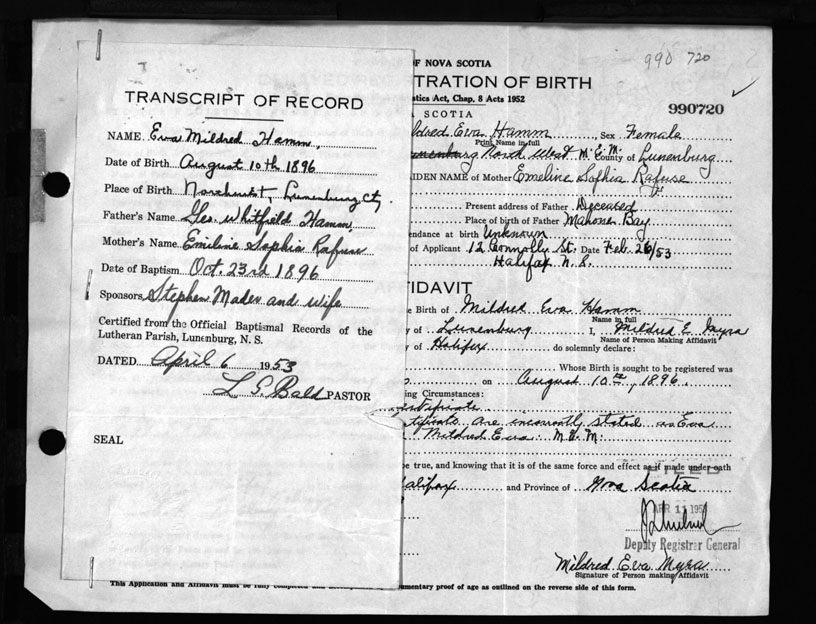 TRANSCRIPT OF RECORD
NAME. Eva Mildred Hamm,
Date of Birth August 10th 1896
Place of Birth Northwest, Lunenburg Cty.
Father's Name Geo. Whitfield Hamm
Mother's Name Emiline Sophia Rafuse
Date of Baptism Oct. 23rd 1896
Sponsors Stephen Mader and wife
Certified from the Official Baptismal Records of the
Lutheran Parish, Lunenburg, N. S.
DATED April 6 1953
L E Bald PASTOR
SEAL
990 720
OF NOVA SCOTIA
TRATION OF BIRTH
tistics Act, Chap. 8 Acts 1952
990720
A SCOTIA
ldred Eva Hamm, Sex Female
Print Name in full
Lunenburg North West M.E.M. County of Lunenburg
AIDEN NAME of Mother Emeline Sophia Rafuse
Present address of Father Deceased
Place of birth of Father Mahone Bay
endance at birth Unknown
of Applicant 12 Connolly St. Date Feb 26/53
Halifax N. S.
FIDAVIT
e Birth of Mildred Eva Hamm
Name in full
y of Lunenburg I, Mildred E. Myra
Name of Person Making Affidavit
y of Halifax do solemnly declare:
Whose Birth is sought to be registered was
on August 10th, 1896.
ing Circumstances:
rtificate
rtificate are incorrectly stated as Eva
Mildred Eva: M.E.M:
be true, and knowing that it is of the same force and effect as if made under oath
FILED
alifax and Province of Nova Scotia
APR 11 195
Deputy Registrar General
Mildred Eva Myra
Signature of Person making Affidavit
This Application and Affidavit must be fully completed umentary proof of age as outlined on the reverse side of this form.